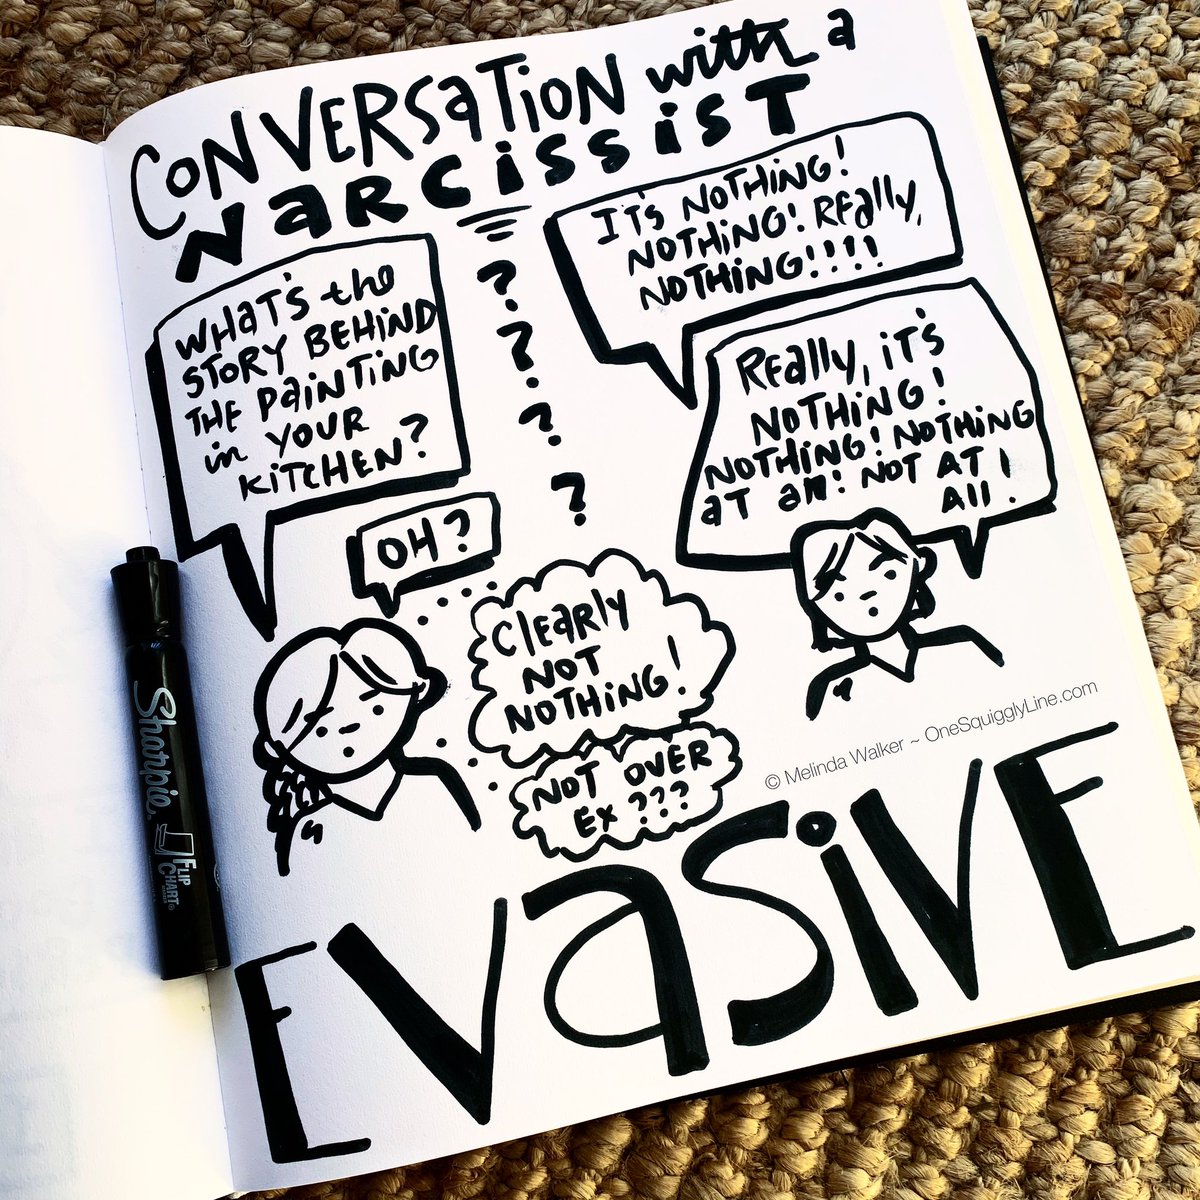 CONVERSATION with a
NARCISSIST
WHAT'S the
STORY BEHIND
THE PAINTING
in YOUR
KITCHEN?
IT'S NOTHING!
NOTHING! REally,
NOTHING!!!!
OH?
REally, iT'S
NOTHING!
NOTHING! NOTHING
AT All! NOT AT
All!
?
?
?
?
?
?
ClEaRly
NOT
NOTHiNG!
NOT OVER
Ex???
© Melinda Walker ~ OneSquigglyLine.com
EVaSiVE
Sharpie
FLIP
CHART